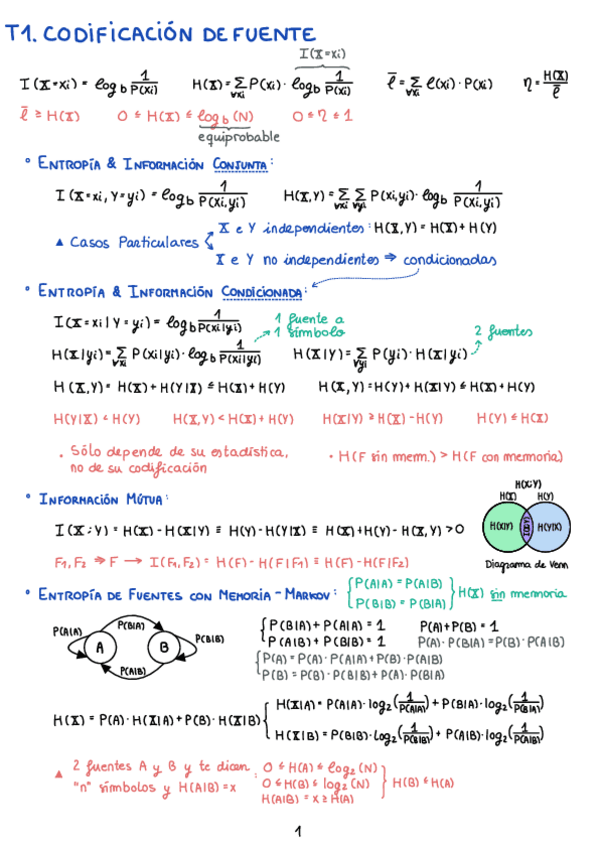 T1. CODIFICACIÓN DE FUENTE
I(X=xi)
I(X=xi) = log_b 1/P(xi)   H(X) = Σ_∀xi P(xi) · log_b 1/P(xi)   l̄ = Σ_∀xi l(xi) · P(xi)   η = H(X)/l̄
l̄ ≥ H(X)   0 ≤ H(X) ≤ log_b (N)   0 ≤ η ≤ 1
equiprobable
° ENTROPÍA & INFORMACIÓN CONJUNTA:
I(X=xi, Y=yi) = log_b 1/P(xi,yi)   H(X,Y) = Σ_∀xi Σ_∀yi P(xi,yi) · log_b 1/P(xi,yi)
▲ Casos Particulares
X e Y independientes: H(X,Y) = H(X) + H(Y)
X e Y no independientes ⇒ condicionadas
° ENTROPÍA & INFORMACIÓN CONDICIONADA:
I(X=xi | Y=yi) = log_b 1/P(xi|yi)   1 fuente a 1 símbolo
2 fuentes
H(X|yi) = Σ_∀xi P(xi|yi) · log_b 1/P(xi|yi)   H(X|Y) = Σ_∀yi P(yi) · H(X|yi)
H(X,Y) = H(X) + H(Y|X) ≤ H(X) + H(Y)   H(X,Y) = H(Y) + H(X|Y) ≤ H(X) + H(Y)
H(Y|X) < H(Y)   H(X,Y) < H(X) + H(Y)   H(X|Y) ≥ H(X) - H(Y)   H(Y) ≤ H(X)
· Sólo depende de su estadística,
no de su codificación
· H(F sin mem.) > H(F con memoria)
° INFORMACIÓN MÚTUA:
I(X;Y) = H(X) - H(X|Y) ≡ H(Y) - H(Y|X) ≡ H(X) + H(Y) - H(X,Y) > 0
F1, F2 ⇒ F → I(F1,F2) = H(F) - H(F|F1) ≡ H(F) - H(F|F2)
H(X;Y)
H(X)   H(Y)
H(X|Y)   I(X;Y)   H(Y|X)
Diagrama de Venn
° ENTROPÍA DE FUENTES CON MEMORIA - MARKOV:
{ P(A|A) = P(A|B)
P(B|B) = P(B|A) } H(X) sin memoria
P(A|A)   P(B|A)   P(B|B)
A   B
P(A|B)
{ P(B|A) + P(A|A) = 1   P(A) + P(B) = 1
P(A|B) + P(B|B) = 1   P(A) · P(B|A) = P(B) · P(A|B)
{ P(A) = P(A) · P(A|A) + P(B) · P(A|B)
P(B) = P(B) · P(B|B) + P(A) · P(B|A)
H(X) = P(A) · H(X|A) + P(B) · H(X|B)
{ H(X|A) = P(A|A) · log2 (1/P(A|A)) + P(B|A) · log2 (1/P(B|A))
H(X|B) = P(B|B) · log2 (1/P(B|B)) + P(A|B) · log2 (1/P(A|B))
▲ 2 fuentes A y B y te dicen :
"n" símbolos y H(A|B) = x
0 ≤ H(A) ≤ log2 (N)
0 ≤ H(B) ≤ log2 (N)
H(A|B) = x ≥ H(A)
} H(B) ≤ H(A)
1